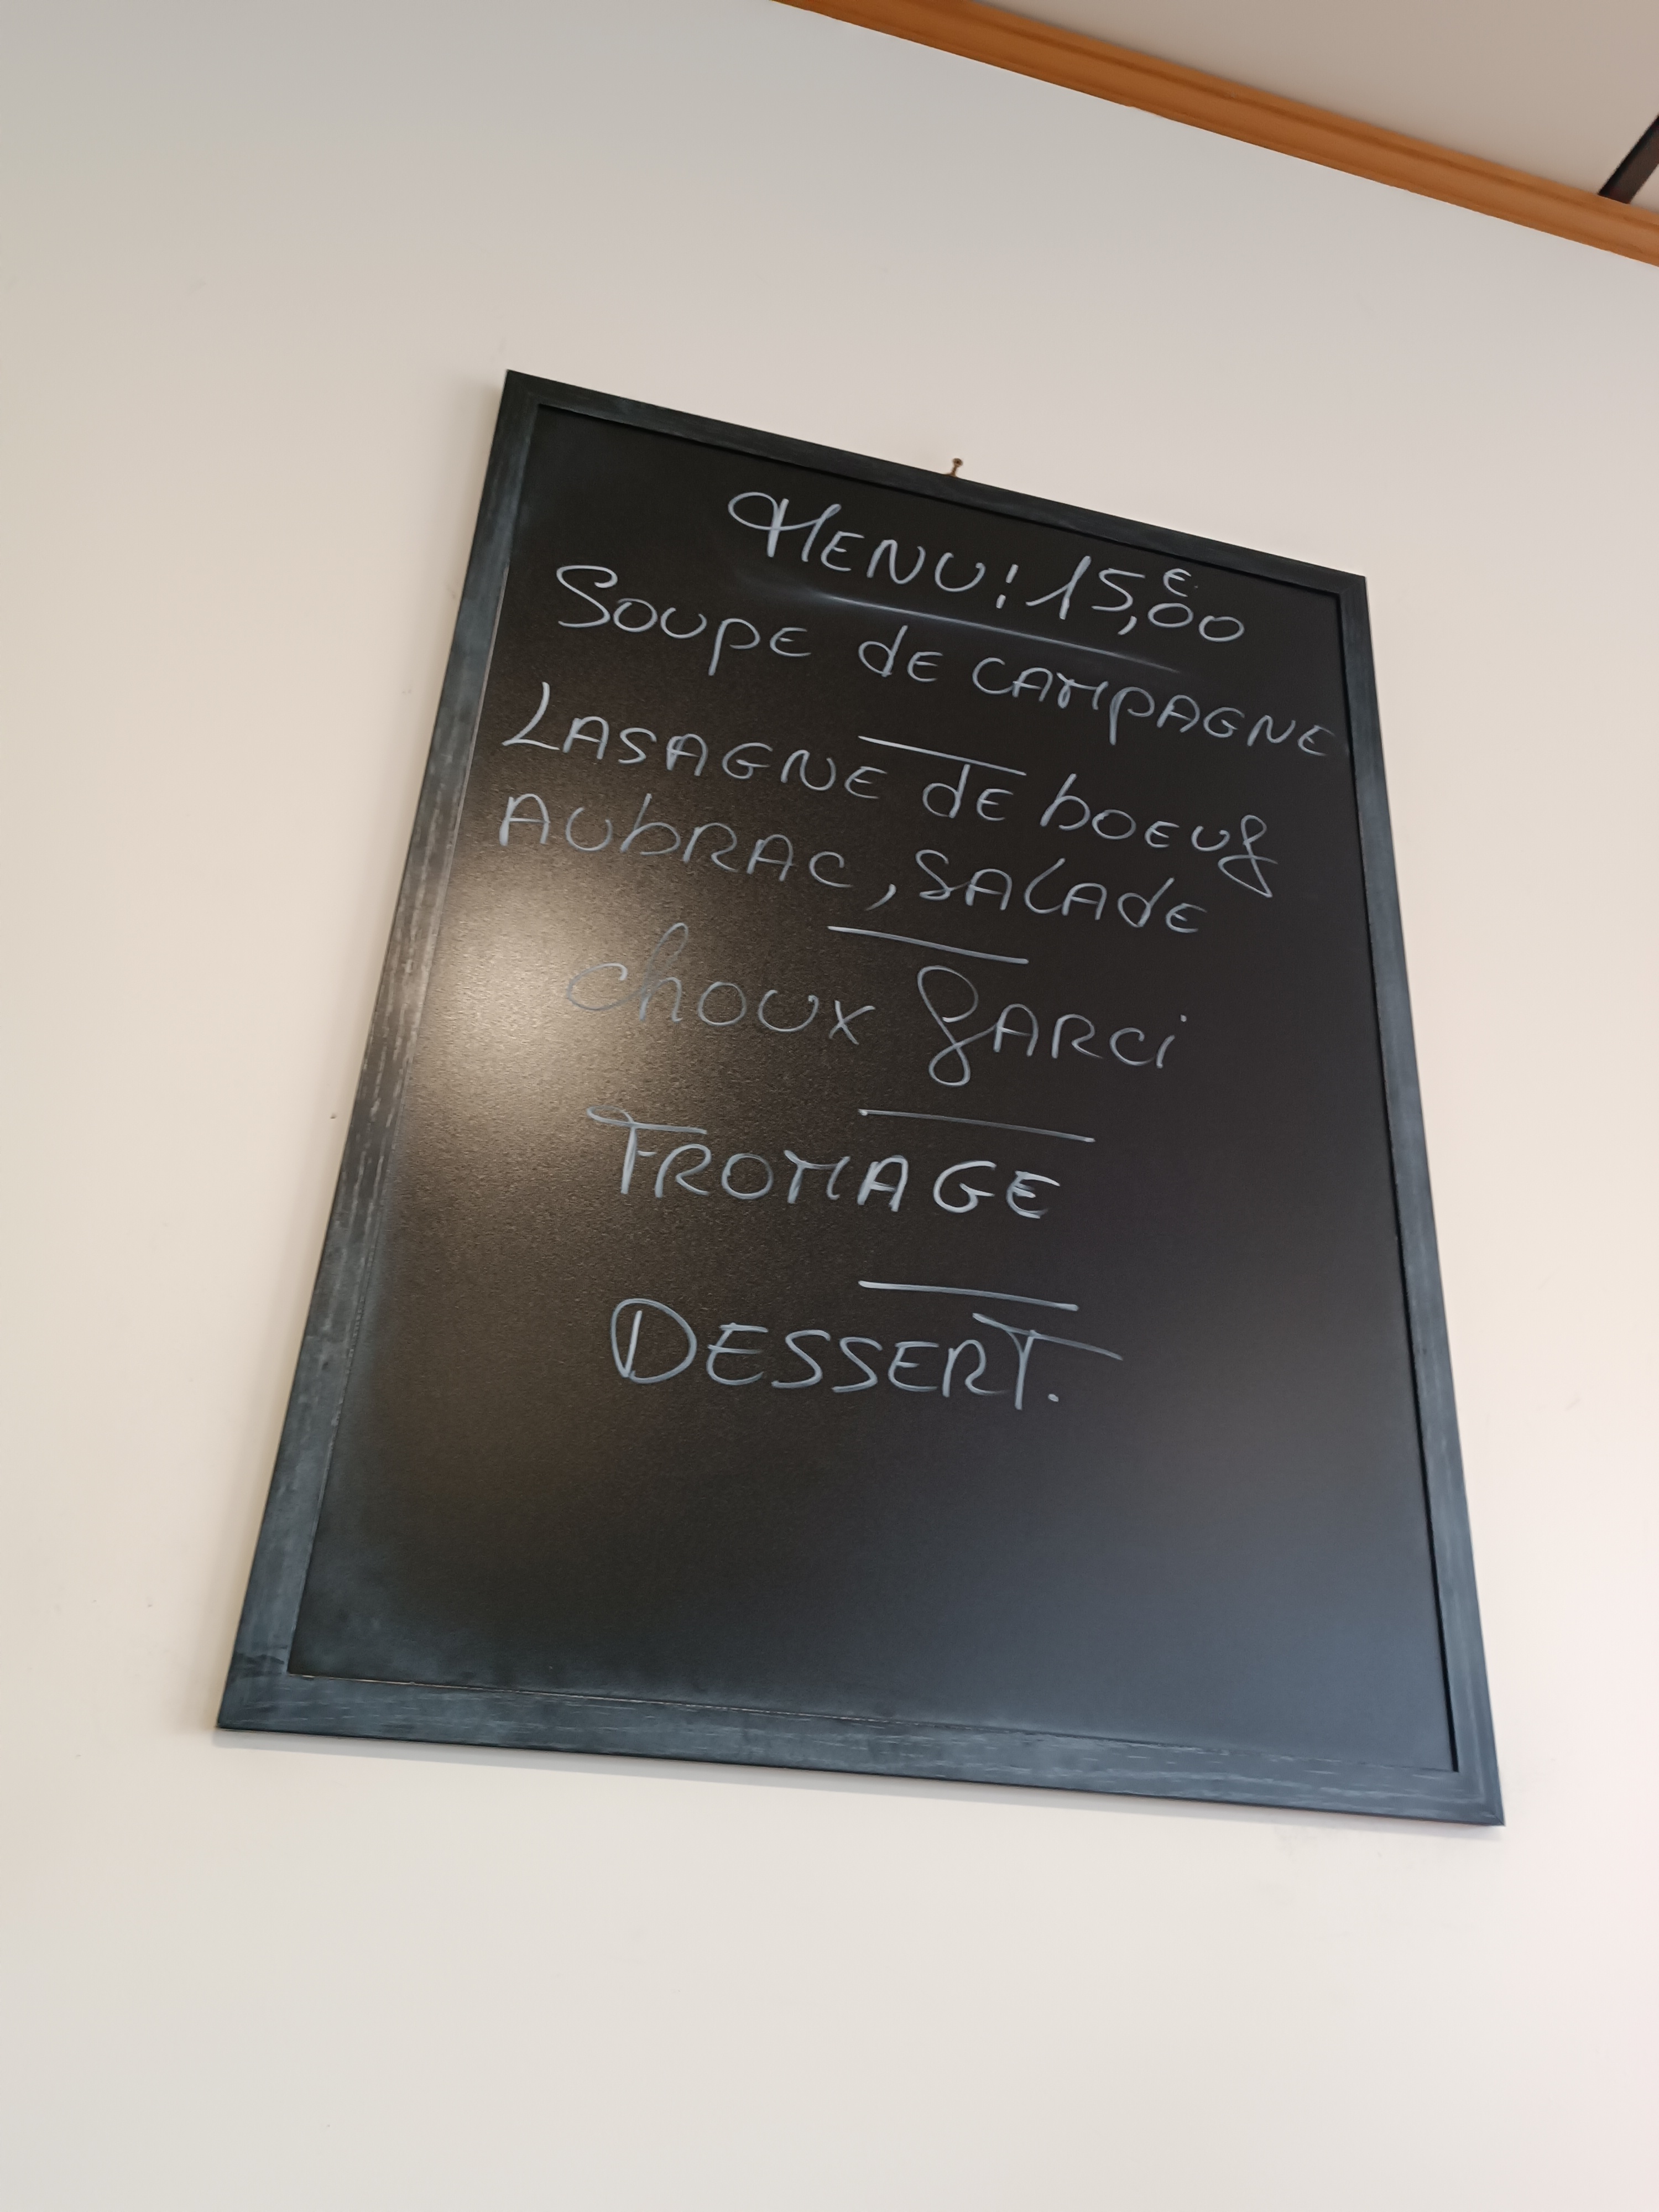 MENU: 15,00€
SOUPE dE CAMPAGNE
LASAGNE dE bOEUf
AUbRAC, SALAdE
chOUX fARCi
FROMAGE
DESSERT.